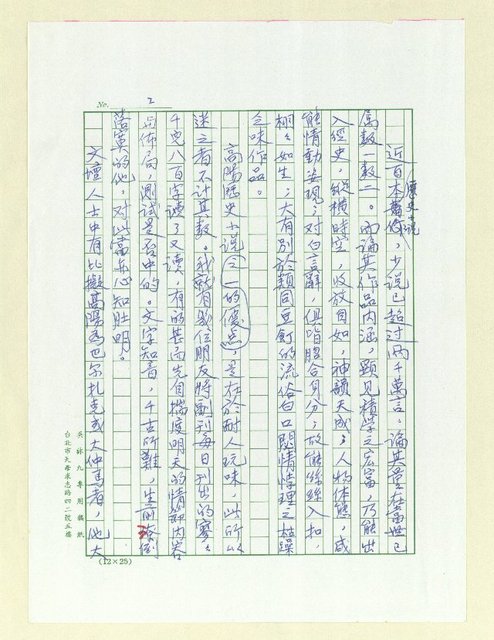 No. 2
近百本歷史小說著作，少說已超過兩千萬言。論其量在當世已
屬數一數二。而論其作品內涵，顯見積學之宏富，乃能出
入經史，縱橫時空，收放自如，神韻天成；人物体態，咸
能情動姿現；對白言辭，俱皆脗合身分；故能絲絲入扣，
栩栩如生；大有別於類同豆飣的流俗白口閑情悖理之枯躁
乏味作品。
高陽歷史小說之一的優点，是在於耐人玩味，此所以
迷之者不計其數。我就有幾位朋友特副刊每日刊出的寥寥
千兒八百字讀了又讀，有的甚而先自揣度明天的情節內容
与佈局，測試是否中的。文字知音，千古所難，生前潦倒
落寞的他。对此當亦心知肚明。
文壇人士中有比擬高陽為巴尔扎克或大仲馬者，他大
吳詠九專用稿紙
台北市天母東路四二號五樓
(12×25)